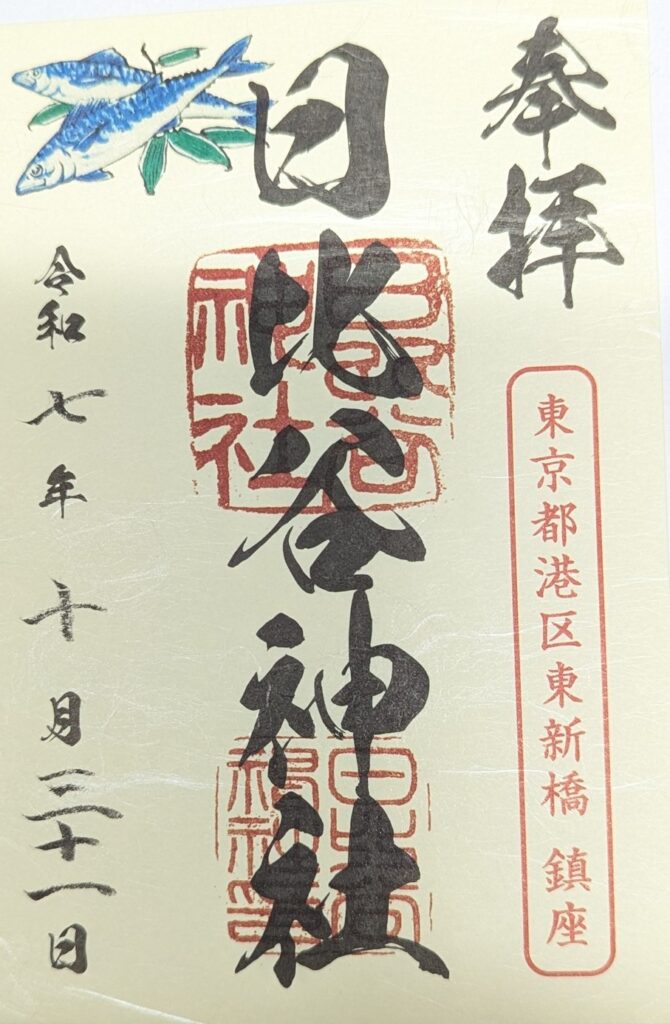 奉拝
東京都港区東新橋 鎮座
日比谷神社
日比谷神社
令和七年十月三十一日